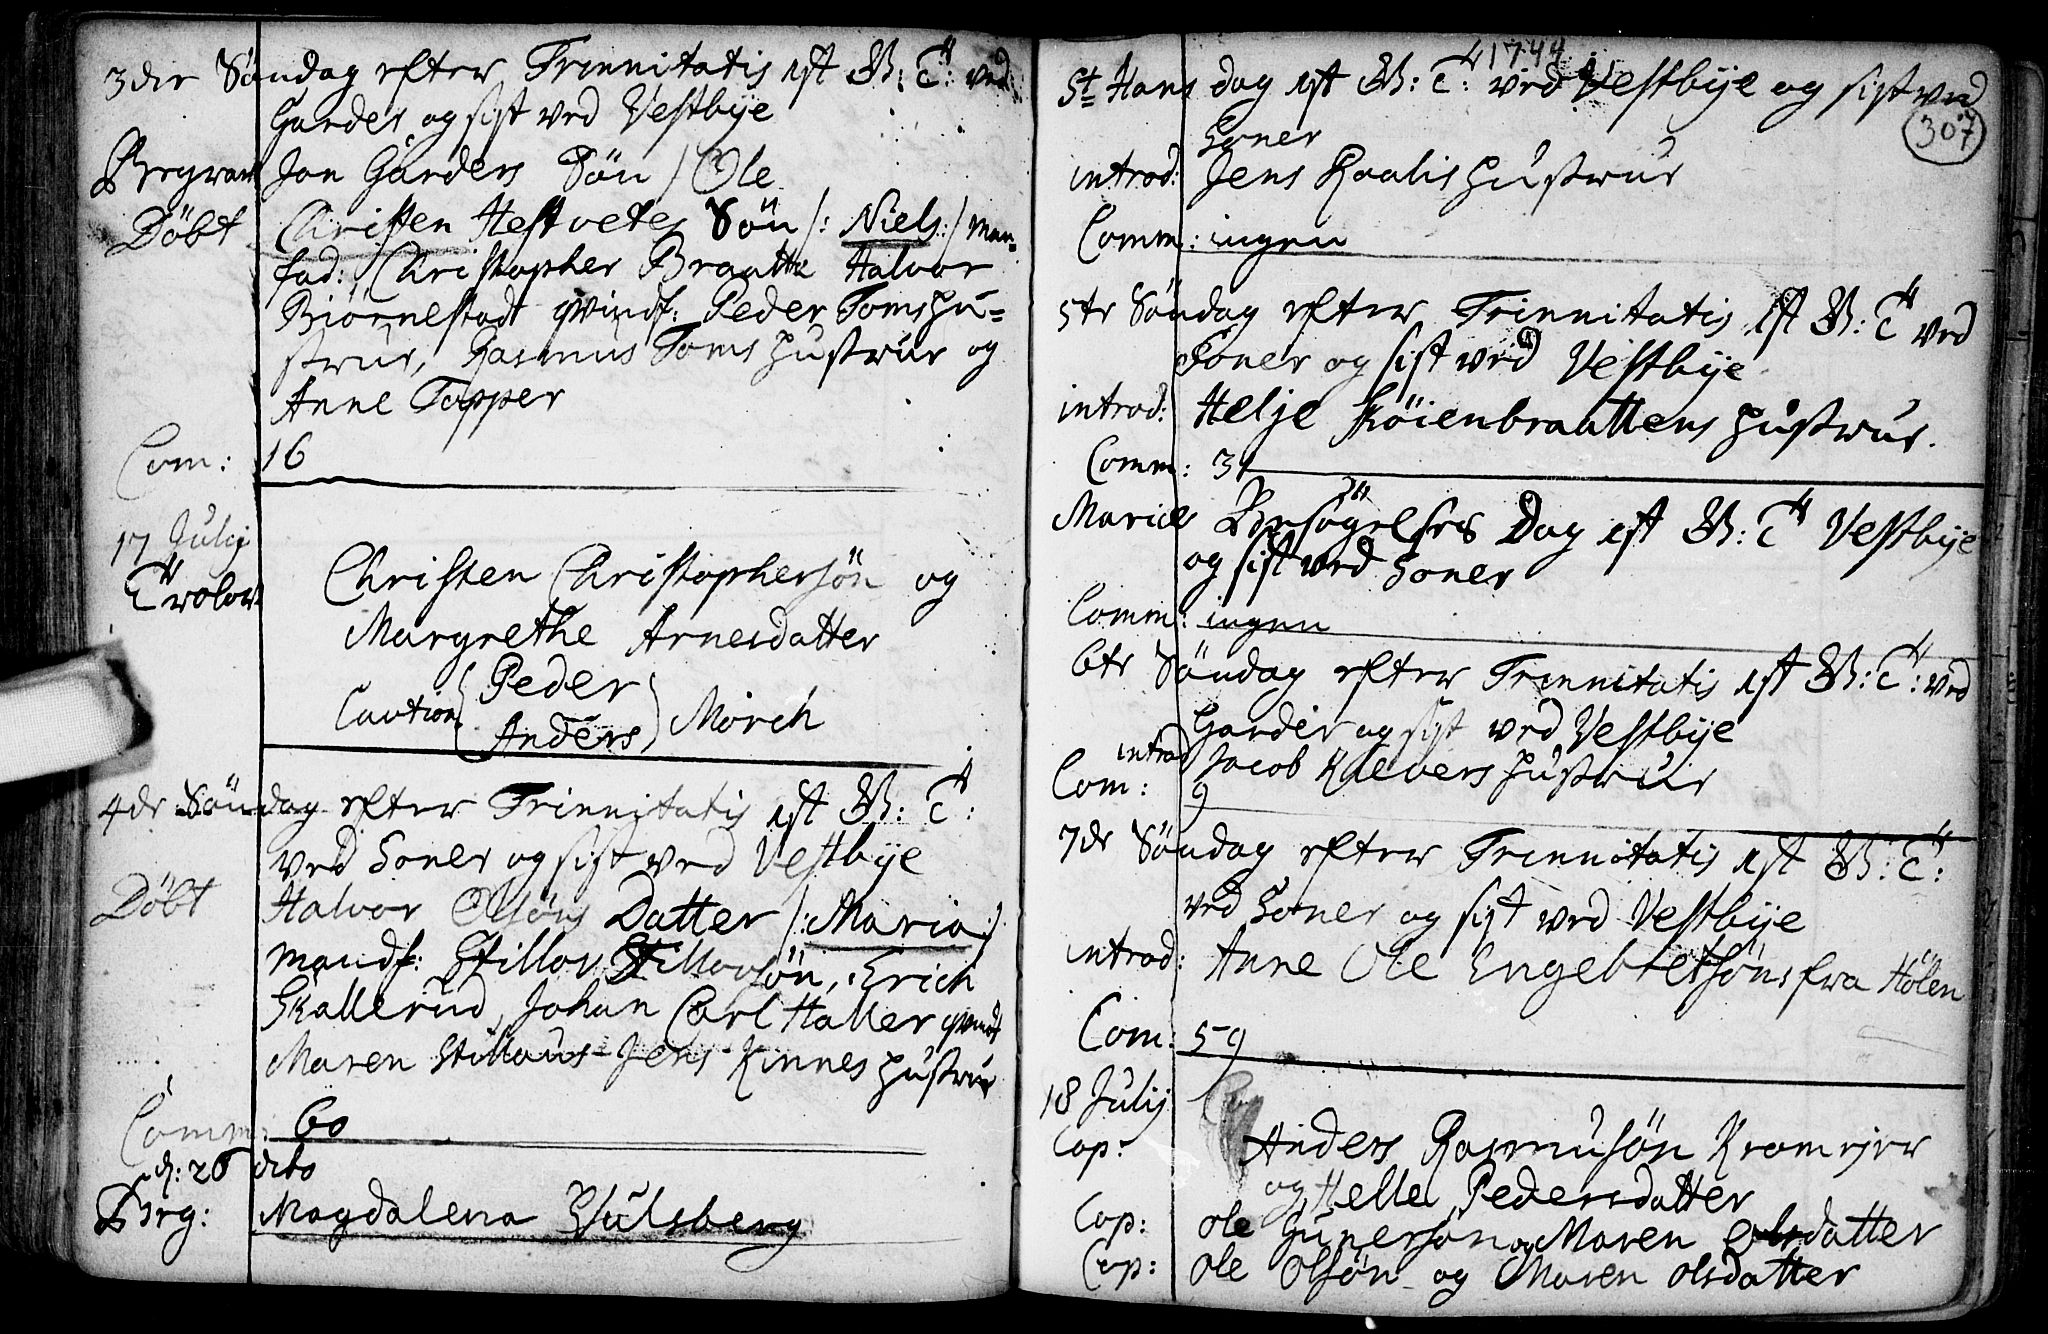 3die Söndag efter Trinnitatis est B: T: ved
Garder og sist ved Vestbye
Begravet Jon Gárders Sön / Ole
Döbt Christen Hestvetes Sön /: Niels :/ man=
fad: Christopher Braatte Halvor
Biörnestadt qvindf: Peder Toms hu=
strue, Rasmus Toms hustrue og
Anne Topper
Com: 16
17 Julij
Trolov: Christen Christophersön og
Margrethe Arnesdatter
Caution (Peder
Anders) Mörch
4de Söndag efter Trinnitatis est B: T:
ved Soner og sist ved Vestbye
Döbt Halvor Olsöns Datter /: Maria :/
mandf: Stillov Stillousön, Erich
Skallerud, Johan Carl Haller qvindf
Maren Stillous - Jens Kinnes hustrue
Comm: 60
d: 26 dito
Beg: Magdalena Stülsberg
1744
307
St Hans dag est B: T: ved Vestbye og sist ved
Soner
introd: Jens Raalis hustrue
Comm: ingen
5te Söndag efter Trinnitatis est B: T ved
Soner og sist ved Vestbye
introd: Helje Köienbraattens hustrue.
Comm: 31
Mariæ Besögelses Dag est B: T Vestbye
og sist ved Soner
Comm: ingen
6te Söndag efter Trinnitatis est B: T: ved
Garder og sist ved Vestbye
introd Jacob Klevers hustrue
Com: 9
7de Söndag efter Trinnitatis est B: T:
ved Soner og sist ved Vestbye
introd: Anne Ole Engebretsöns fra Hölen
Com: 59
18 Julij
Cop: Anders Rasmusön Kromejer
og Helle Pedersdatter
Cop: Ole Gunersön og Maren Olsdatter
Cop: Ole Olsön og Maren Olsdatter